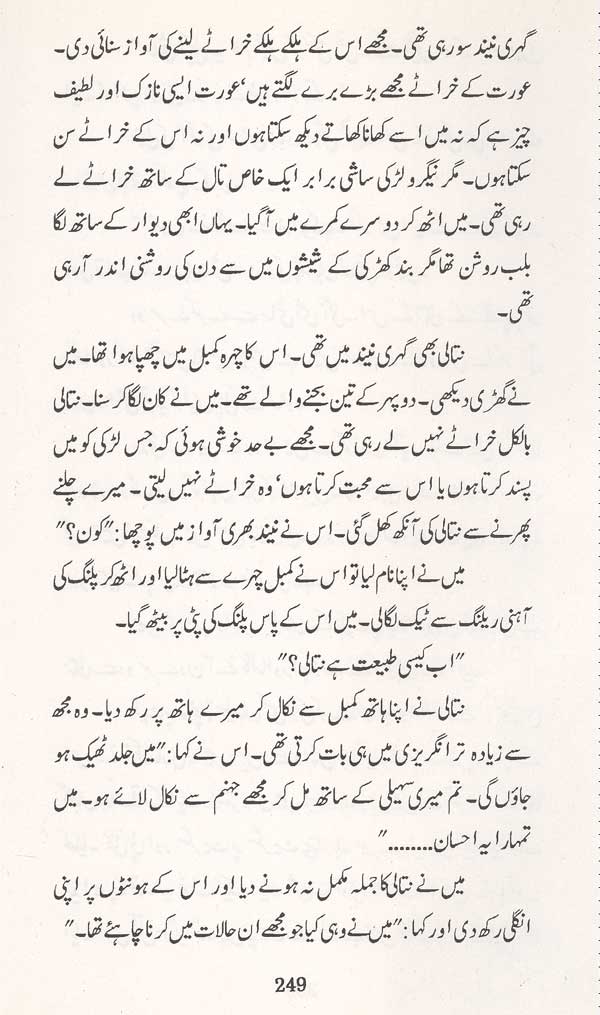 گہری نیند سو رہی تھی۔ مجھے اس کے ہلکے ہلکے خراٹے لینے کی آواز سنائی دی۔
عورت کے خراٹے مجھے بڑے برے لگتے ہیں‘ عورت ایسی نازک اور لطیف
چیز ہے کہ نہ میں اسے کھانا کھاتے دیکھ سکتا ہوں اور نہ اس کے خراٹے سن
سکتا ہوں۔ مگر نیگرو لڑکی ساشی برابر ایک خاص تال کے ساتھ خراٹے لے
رہی تھی۔ میں اٹھ کر دوسرے کمرے میں آ گیا۔ یہاں ابھی دیوار کے ساتھ لگا
بلب روشن تھا مگر بند کھڑکی کے شیشوں میں سے دن کی روشنی اندر آ رہی
تھی۔
نتالی بھی گہری نیند میں تھی۔ اس کا چہرہ کمبل میں چھپا ہوا تھا۔ میں
نے گھڑی دیکھی۔ دوپہر کے تین بجنے والے تھے۔ میں نے کان لگا کر سنا۔ نتالی
بالکل خراٹے نہیں لے رہی تھی۔ مجھے بے حد خوشی ہوئی کہ جس لڑکی کو میں
پسند کرتا ہوں یا اس سے محبت کرتا ہوں‘ وہ خراٹے نہیں لیتی۔ میرے چلنے
پھرنے سے نتالی کی آنکھ کھل گئی۔ اس نے نیند بھری آواز میں پوچھا: "کون؟"
میں نے اپنا نام لیا تو اس نے کمبل چہرے سے ہٹا لیا اور اٹھ کر پلنگ کی
آہنی ریلنگ سے ٹیک لگا لی۔ میں اس کے پاس پلنگ کی پٹی پر بیٹھ گیا۔
"اب کیسی طبیعت ہے نتالی؟"
نتالی نے اپنا ہاتھ کمبل سے نکال کر میرے ہاتھ پر رکھ دیا۔ وہ مجھ
سے زیادہ تر انگریزی میں ہی بات کرتی تھی۔ اس نے کہا: "میں جلد ٹھیک ہو
جاؤں گی۔ تم میری سہیلی کے ساتھ مل کر مجھے جہنم سے نکال لائے ہو۔ میں
تمہارا یہ احسان........"
میں نے نتالی کا جملہ مکمل نہ ہونے دیا اور اس کے ہونٹوں پر اپنی
انگلی رکھ دی اور کہا: "میں نے وہی کیا جو مجھے ان حالات میں کرنا چاہئے تھا۔"
249